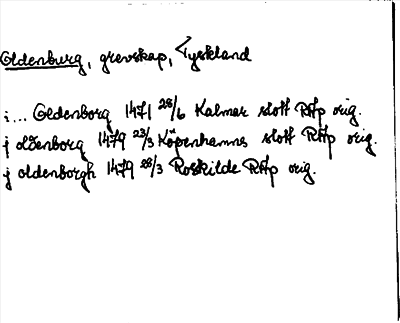 Oldenburg, grevskap, Tyskland
i... Oldenborg 1471 28/6 Kalmar slott RAp orig.
j oldenborg 1479 23/3 Köpenhamns slott RAp orig.
j oldenborgh 1479 28/3 Roskilde RAp orig.